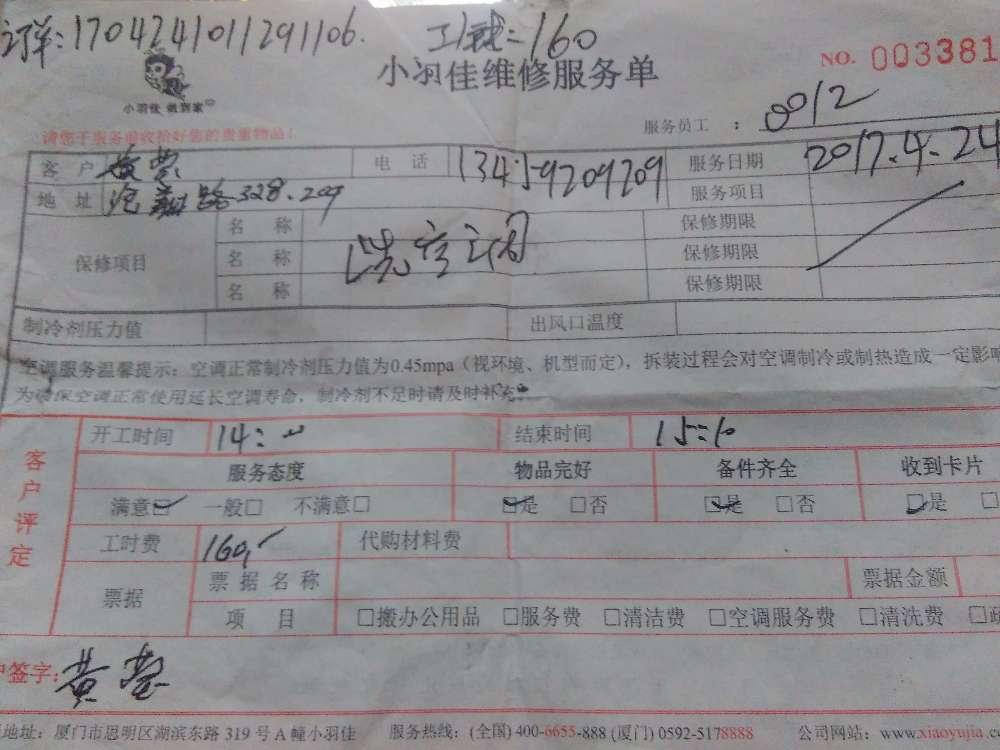 订单:1704241011291106. 工钱:160
小羽佳 做到家
小羽佳维修服务单
NO. 003381
请您于服务前收拾好您的贵重物品!
服务员工 : 0012
客户 黄莹 电话 13459209209 服务日期 2017.4.24
地址 路328.209 服务项目
保修项目 名称 洗空调 保修期限
名称 保修期限
名称 保修期限
制冷剂压力值 出风口温度
空调服务温馨提示:空调正常制冷剂压力值为0.45mpa(视环境、机型而定),拆装过程会对空调制冷或制热造成一定影响
为确保空调正常使用延长空调寿命,制冷剂不足时请及时补充。
客户评定
开工时间 14: 结束时间 15:10
服务态度 物品完好 备件齐全 收到卡片
满意☑ 一般□ 不满意□ ☑是 □否 ☑是 □否 ☑是 □
工时费 160 代购材料费
票据 票据名称 票据金额
项目 □搬办公用品 □服务费 □清洁费 □空调服务费 □清洗费 □
户签字: 黄莹
地址:厦门市思明区湖滨东路 319 号 A 幢小羽佳 服务热线:(全国) 400-6655-888 (厦门) 0592-5178888 公司网站:www.xiaoyujia.c